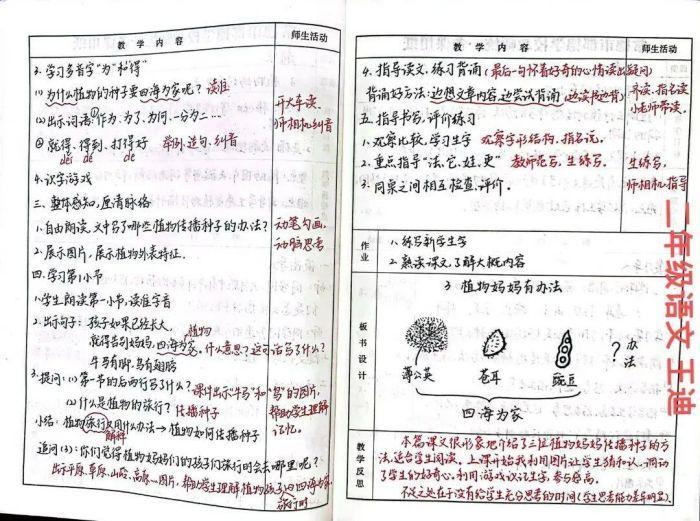 教 学 内 容
师生活动
3.学习多音字“为”和“得”
(1)为什么植物的种子要四海为家呢？ 读准
(2)出示词语①作为、为了、为何、一分为二……
②就得、得到、打得好 举例、造句、纠音
děi dé de
开火车读、
师相机纠音
4.识字游戏
三.整体感知,厘清脉络
1.自由朗读,文中写了哪些植物传播种子的办法？
动笔勾画,
动脑思考
2.展示图片,展示植物外表特征.
四.学习第1小节
1.学生朗读第一小节,读准字音
2.出示句子：孩子如果已经长大,
植物
就得告别妈妈,四海为家.什么意思？这句话写了什么？
牛马有脚,鸟有翅膀
3.提问：(1)第一节的后两行写了什么？课件出示“牛马”和“鸟”的图片,
(2)什么是植物的旅行？ 传播种子
帮助学生理解
记忆.
小结：植物旅行又用什么办法→植物如何传播种子
解释
追问(3)：你们觉得植物妈妈们的孩子们旅行时会去哪里呢？
出示平原、草原、山路、高原…图片,帮助学生理解植物孩子四海为家,
旅行时
教 学 内 容
师生活动
4.指导读文,练习背诵(最后一句怀着好奇的心情读出疑问)
背诵好方法：边想文章内容,边尝试背诵(边读书边背)
齐读、指名读
小老师带读.
五.指导书写,评价练习
1.观察比较,学习生字 观察字形结构,指名说,
2.重点指导“法、它、娃、更” 教师范写,生练写,
生练写,
3.同桌之间相互检查、评价.
师相机指导
作业
1.练写新学生字
2.熟读课文,了解大概内容
板书设计
3 植物妈妈有办法
蒲公英 苍耳 豌豆
？办法
四海为家
教学反思
本篇课文很形象地介绍了三位植物妈妈传播种子的方
法,适合学生阅读。上课开始我利用图片让学生猜和认,调动
了学生的好奇心,利用游戏认记生字,参与感高.
不足之处在于没有给学生充分思考的时间(学生思考能力差异明显).
二年级语文王迪